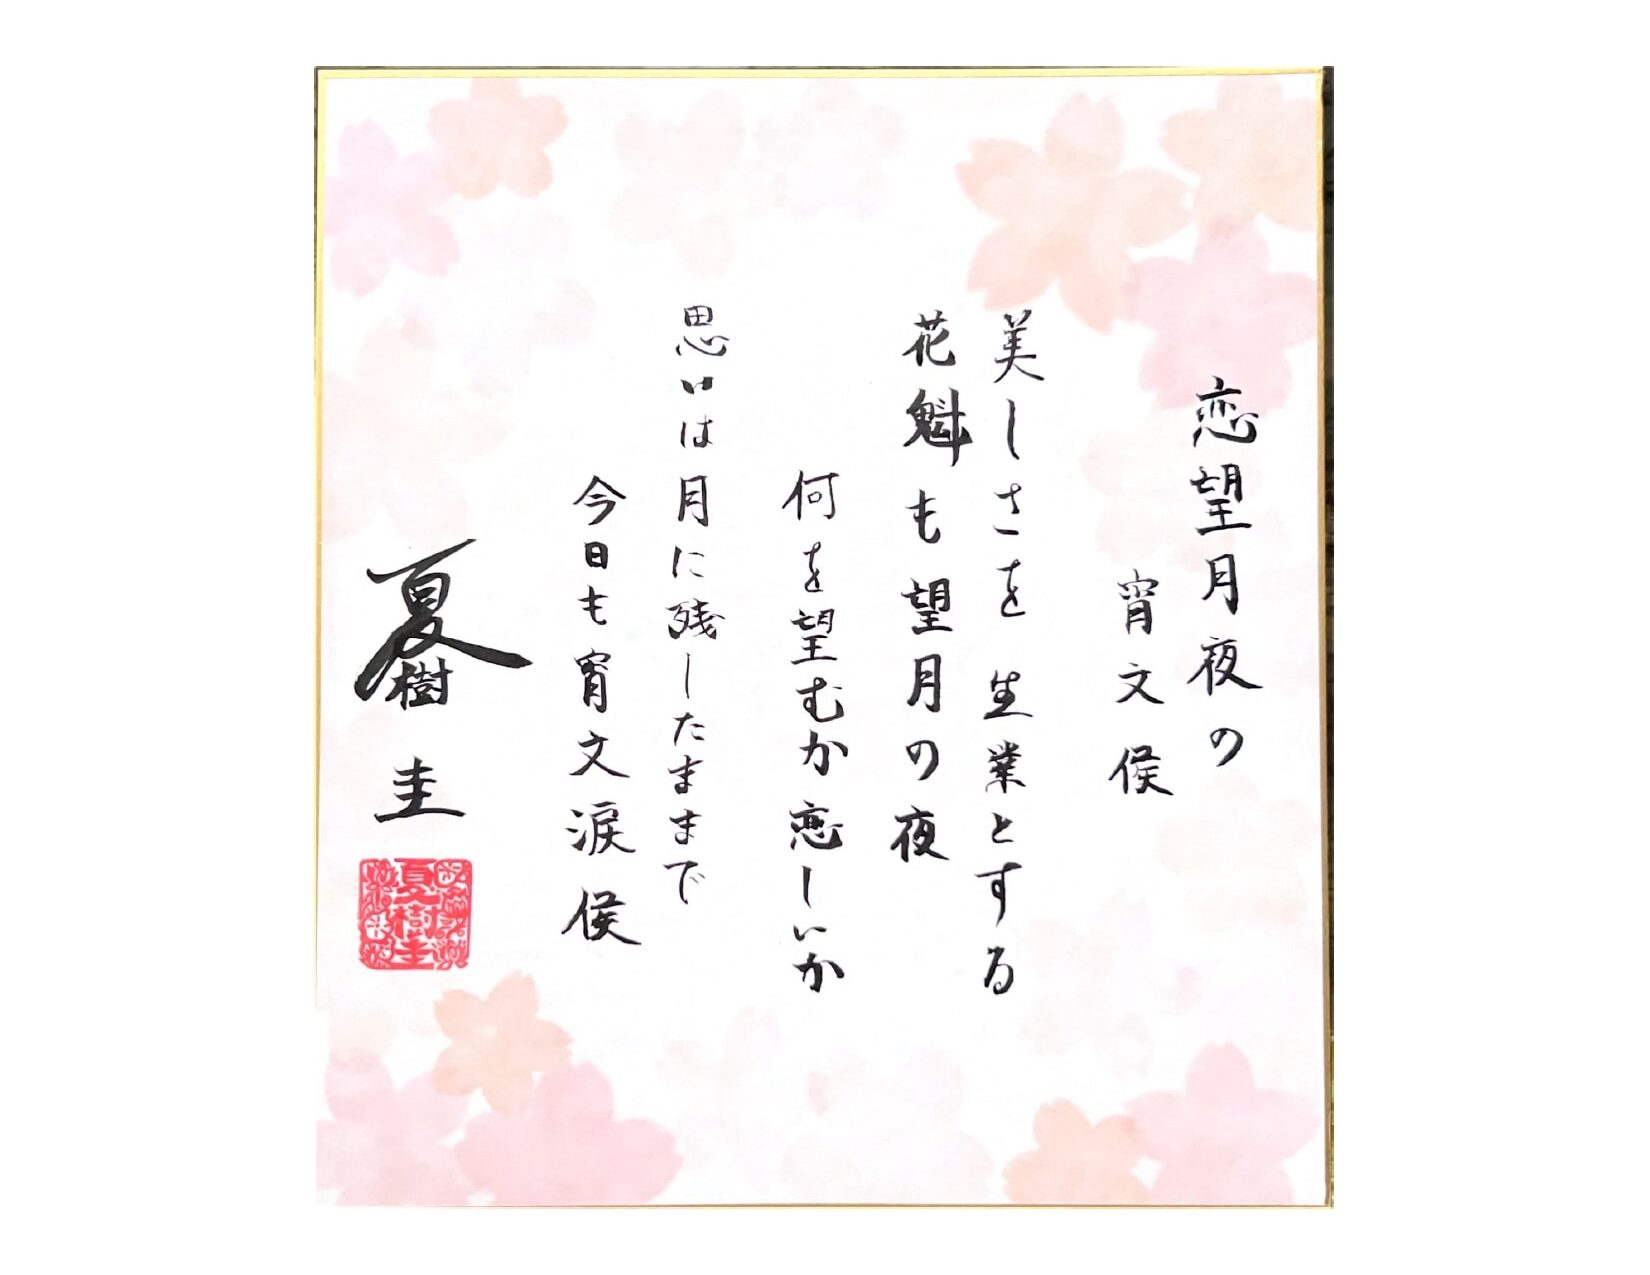 恋望月夜の
宵文候
美しさを生業とする
花魁も望月の夜
何を望むか恋しいか
思いは月に残したままで
今日も宵文涙候
夏樹 圭
夏樹圭